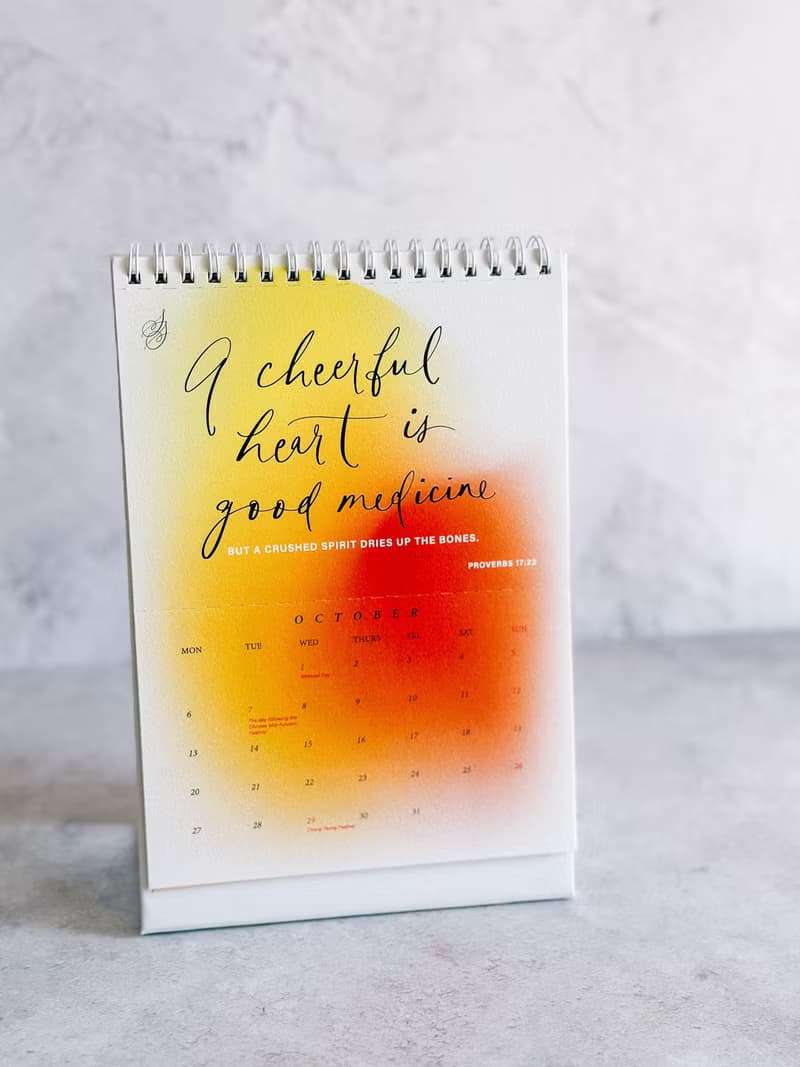 A cheerful
heart is
good medicine
BUT A CRUSHED SPIRIT DRIES UP THE BONES.
PROVERBS 17:22
OCTOBER
MON TUE WED THURS FRI SAT SUN
1 2 3 4 5
National Day
6 7 8 9 10 11 12
The day following the
Chinese Mid-Autumn
Festival
13 14 15 16 17 18 19
20 21 22 23 24 25 26
27 28 29 30 31
Chung Yeung Festival